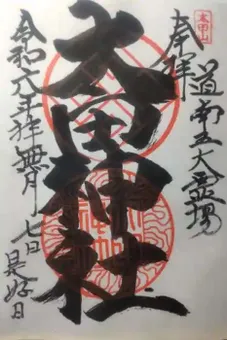 太田山
奉拝
道南五大霊場
太田神社
令和六年神無月七日
是好日